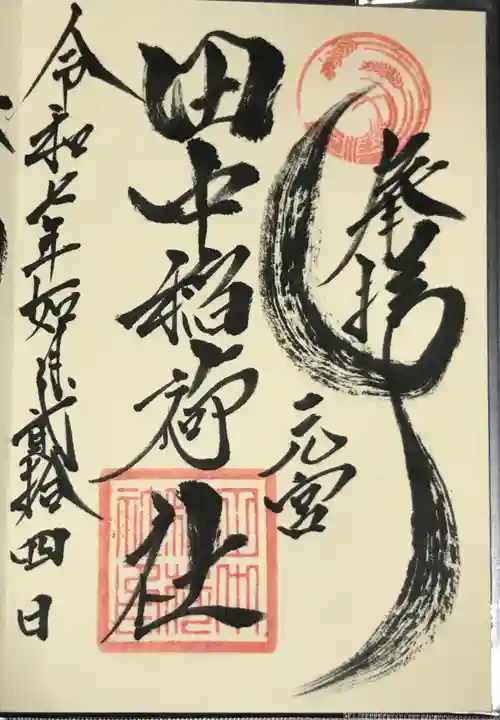 奉拝
元宮
田中稲荷社
令和七年如月弐拾四日